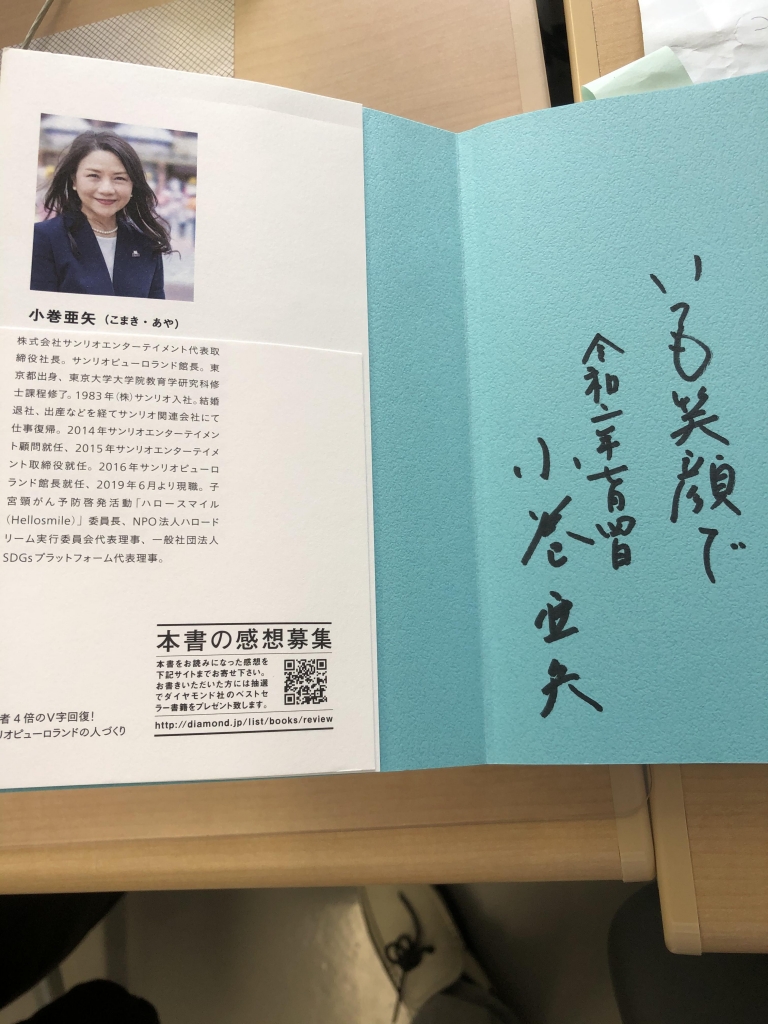 小巻亜矢（こまき・あや）
株式会社サンリオエンターテイメント代表取
締役社長。サンリオピューロランド館長。東
京都出身、東京大学大学院教育学研究科修
士課程修了。1983年(株)サンリオ入社。結婚
退社、出産などを経てサンリオ関連会社にて
仕事復帰。2014年サンリオエンターテイメン
ト顧問就任、2015年サンリオエンターテイメ
ント取締役就任。2016年サンリオピューロ
ランド館長就任、2019年6月より現職。子
宮頸がん予防啓発活動「ハロースマイル
（Hellosmile）」委員長、NPO法人ハロード
リーム実行委員会代表理事、一般社団法人
SDGsプラットフォーム代表理事。
本書の感想募集
本書をお読みになった感想を
下記サイトまでお寄せ下さい。
お書きいただいた方には抽選
でダイヤモンド社のベストセ
ラー書籍をプレゼント致します。
http://diamond.jp/list/books/review
者4倍のV字回復！
リオピューロランドの人づくり
いつも笑顔で
令和二年
小巻亜矢